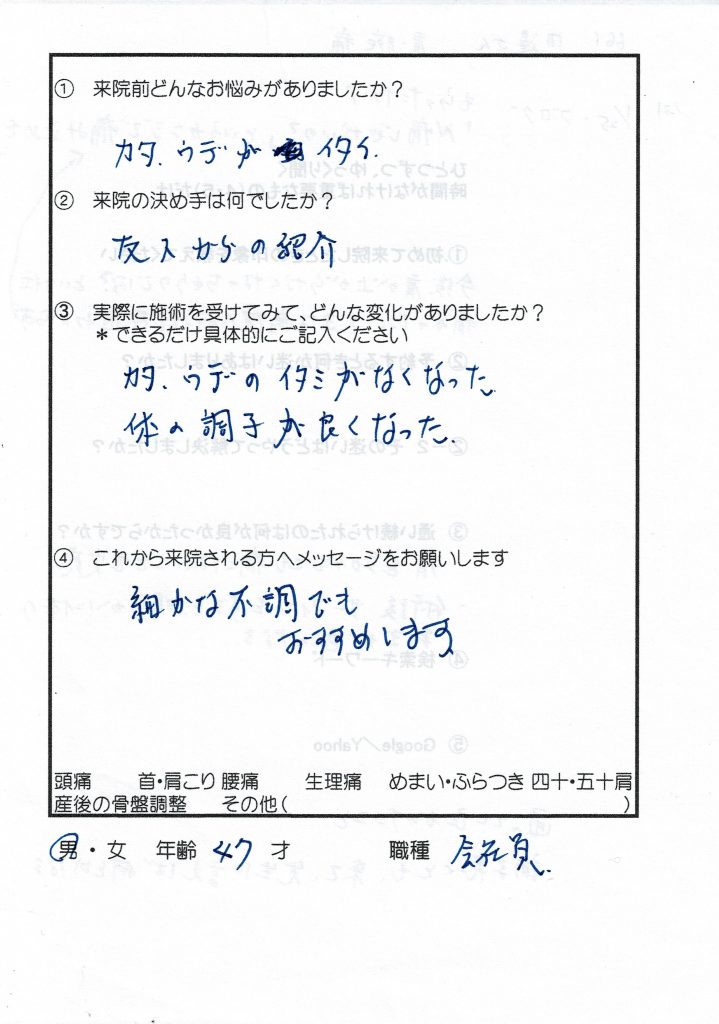 ① 来院前どんなお悩みがありましたか？
カタ、ウデが イタイ.
② 来院の決め手は何でしたか？
友人からの紹介
③ 実際に施術を受けてみて、どんな変化がありましたか？
＊できるだけ具体的にご記入ください
カタ、ウデのイタミがなくなった
体の調子が良くなった
④ これから来院される方へメッセージをお願いします
細かな不調でも
おすすめします
頭痛 首・肩こり 腰痛 生理痛 めまい・ふらつき 四十・五十肩
産後の骨盤調整 その他（ ）
男・女 年齢 47 才 職種 会社員